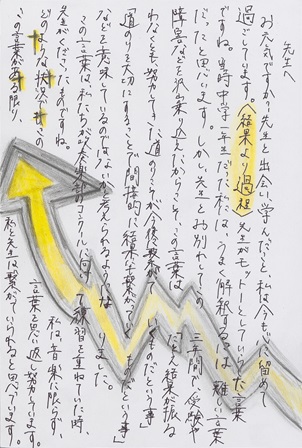 先生へ
お元気ですか？先生と出会い学んだこと、私は今も心に留めて
過ごしています。〈結果より過程〉先生がモットーとしていらした言葉
ですね。当時中学一年生だった私には、うまく解釈するには難しい言葉
だったと思います。しかし、先生とお別れしての三年間で、受験や
障黒などを乗り越えたからこそ、この言葉は「たとえ結果が振る
わなくとも、努力してきた道のりこそが今後繋がっていくものだという事」
「道のりを大切にすることで間接的に結果に繋がっていくものだという事」
などを意味しているのではないかと考えられるようになりました。
この言葉は、私たちが吹奏楽部のコンクールに向けて練習を重ねていた時、
先生がくださったものですね。私は、音楽に限らず、
どのような状況でもこの言葉を思い返し努力しています。
この言葉がある限り、私と先生は繋がっていられると思っています。